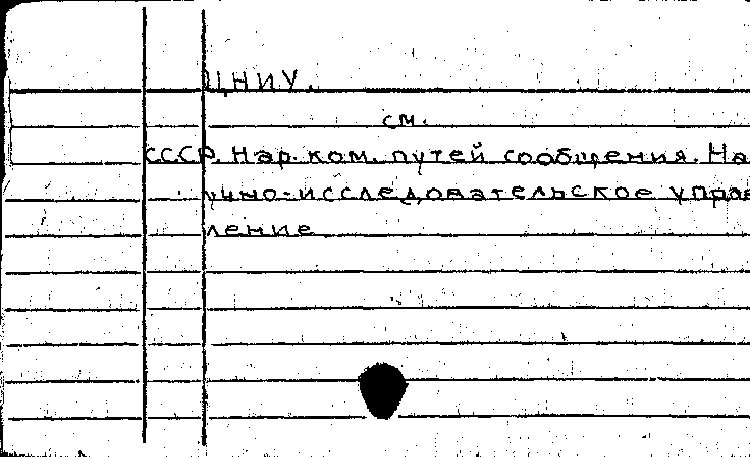 ЦНИУ.
см.
СССР. Нар. ком. путей сообщения. На
учно-исследовательское управ
ление